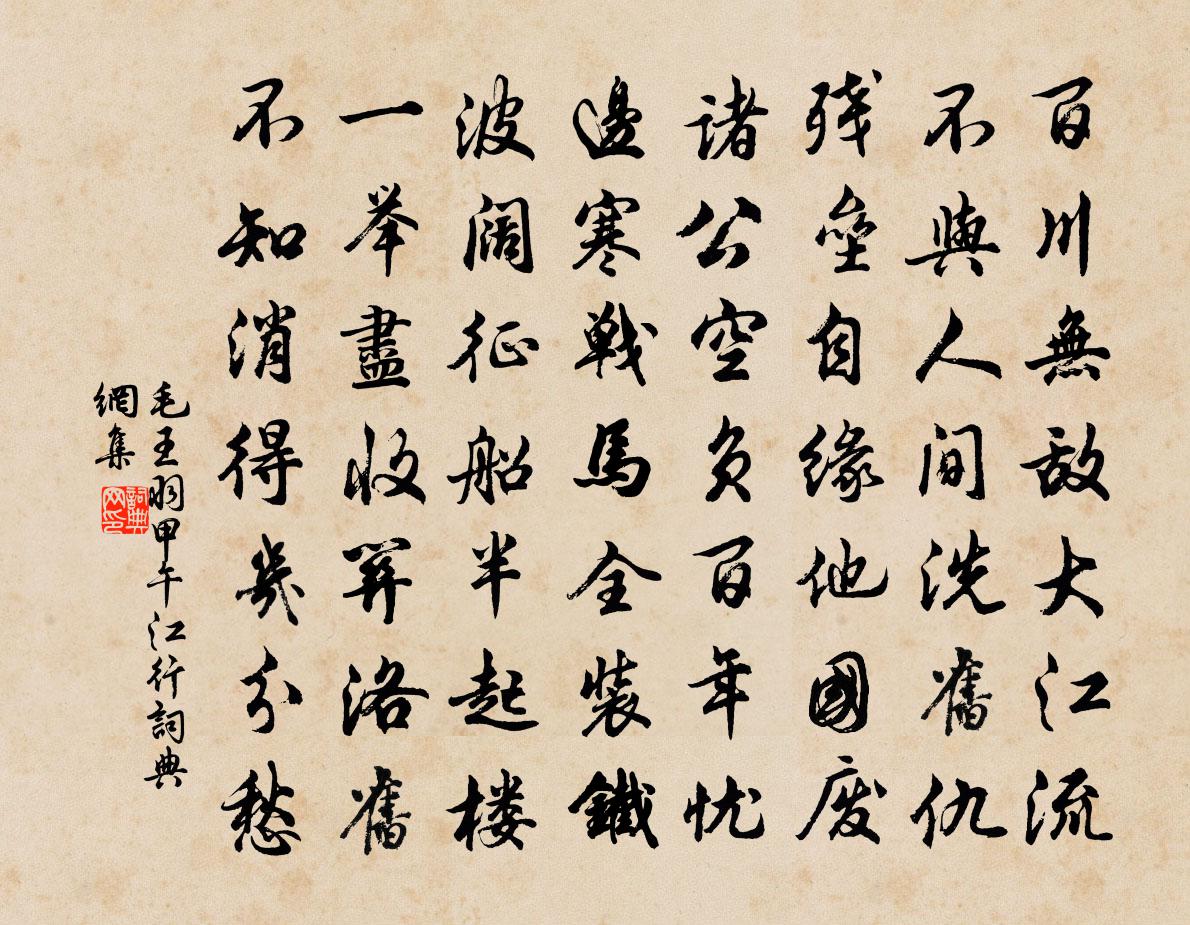 百川無敌大江流
不與人間洗舊仇
残壘自緣他國废
諸公空负百年忧
邊寒戰馬全裝鐵
波阔征船半起楼
一举盡收關洛舊
不知消得幾分愁
毛王羽甲午江行詞典
網集
詞典
网印